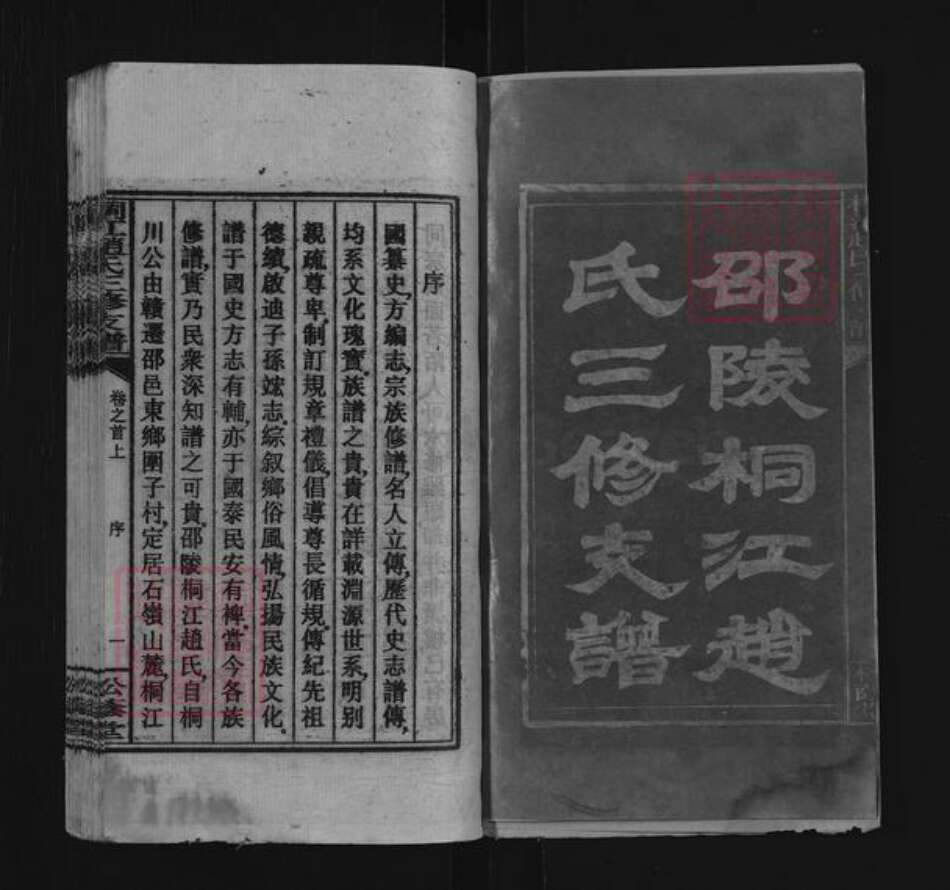 邵陵桐江趙
氏三修支譜
序
國纂史,方編志,宗族修譜,名人立傳,歷代史志譜傳,
均系文化瑰寶,族譜之貴,貴在詳載淵源世系,明別
親疏尊卑,制訂規章禮儀,倡導尊長循規,傳紀先祖
德績,啟迪子孫宏志,綜叙鄉俗風情,弘揚民族文化。
譜于國史方志有輔,亦于國泰民安有裨,當今各族
修譜,實乃民衆深知譜之可貴,邵陵桐江趙氏,自桐
川公由贛遷邵邑東鄉團子村,定居石嶺山麓,桐江
桐江趙氏三修支譜
卷之首上
序
一